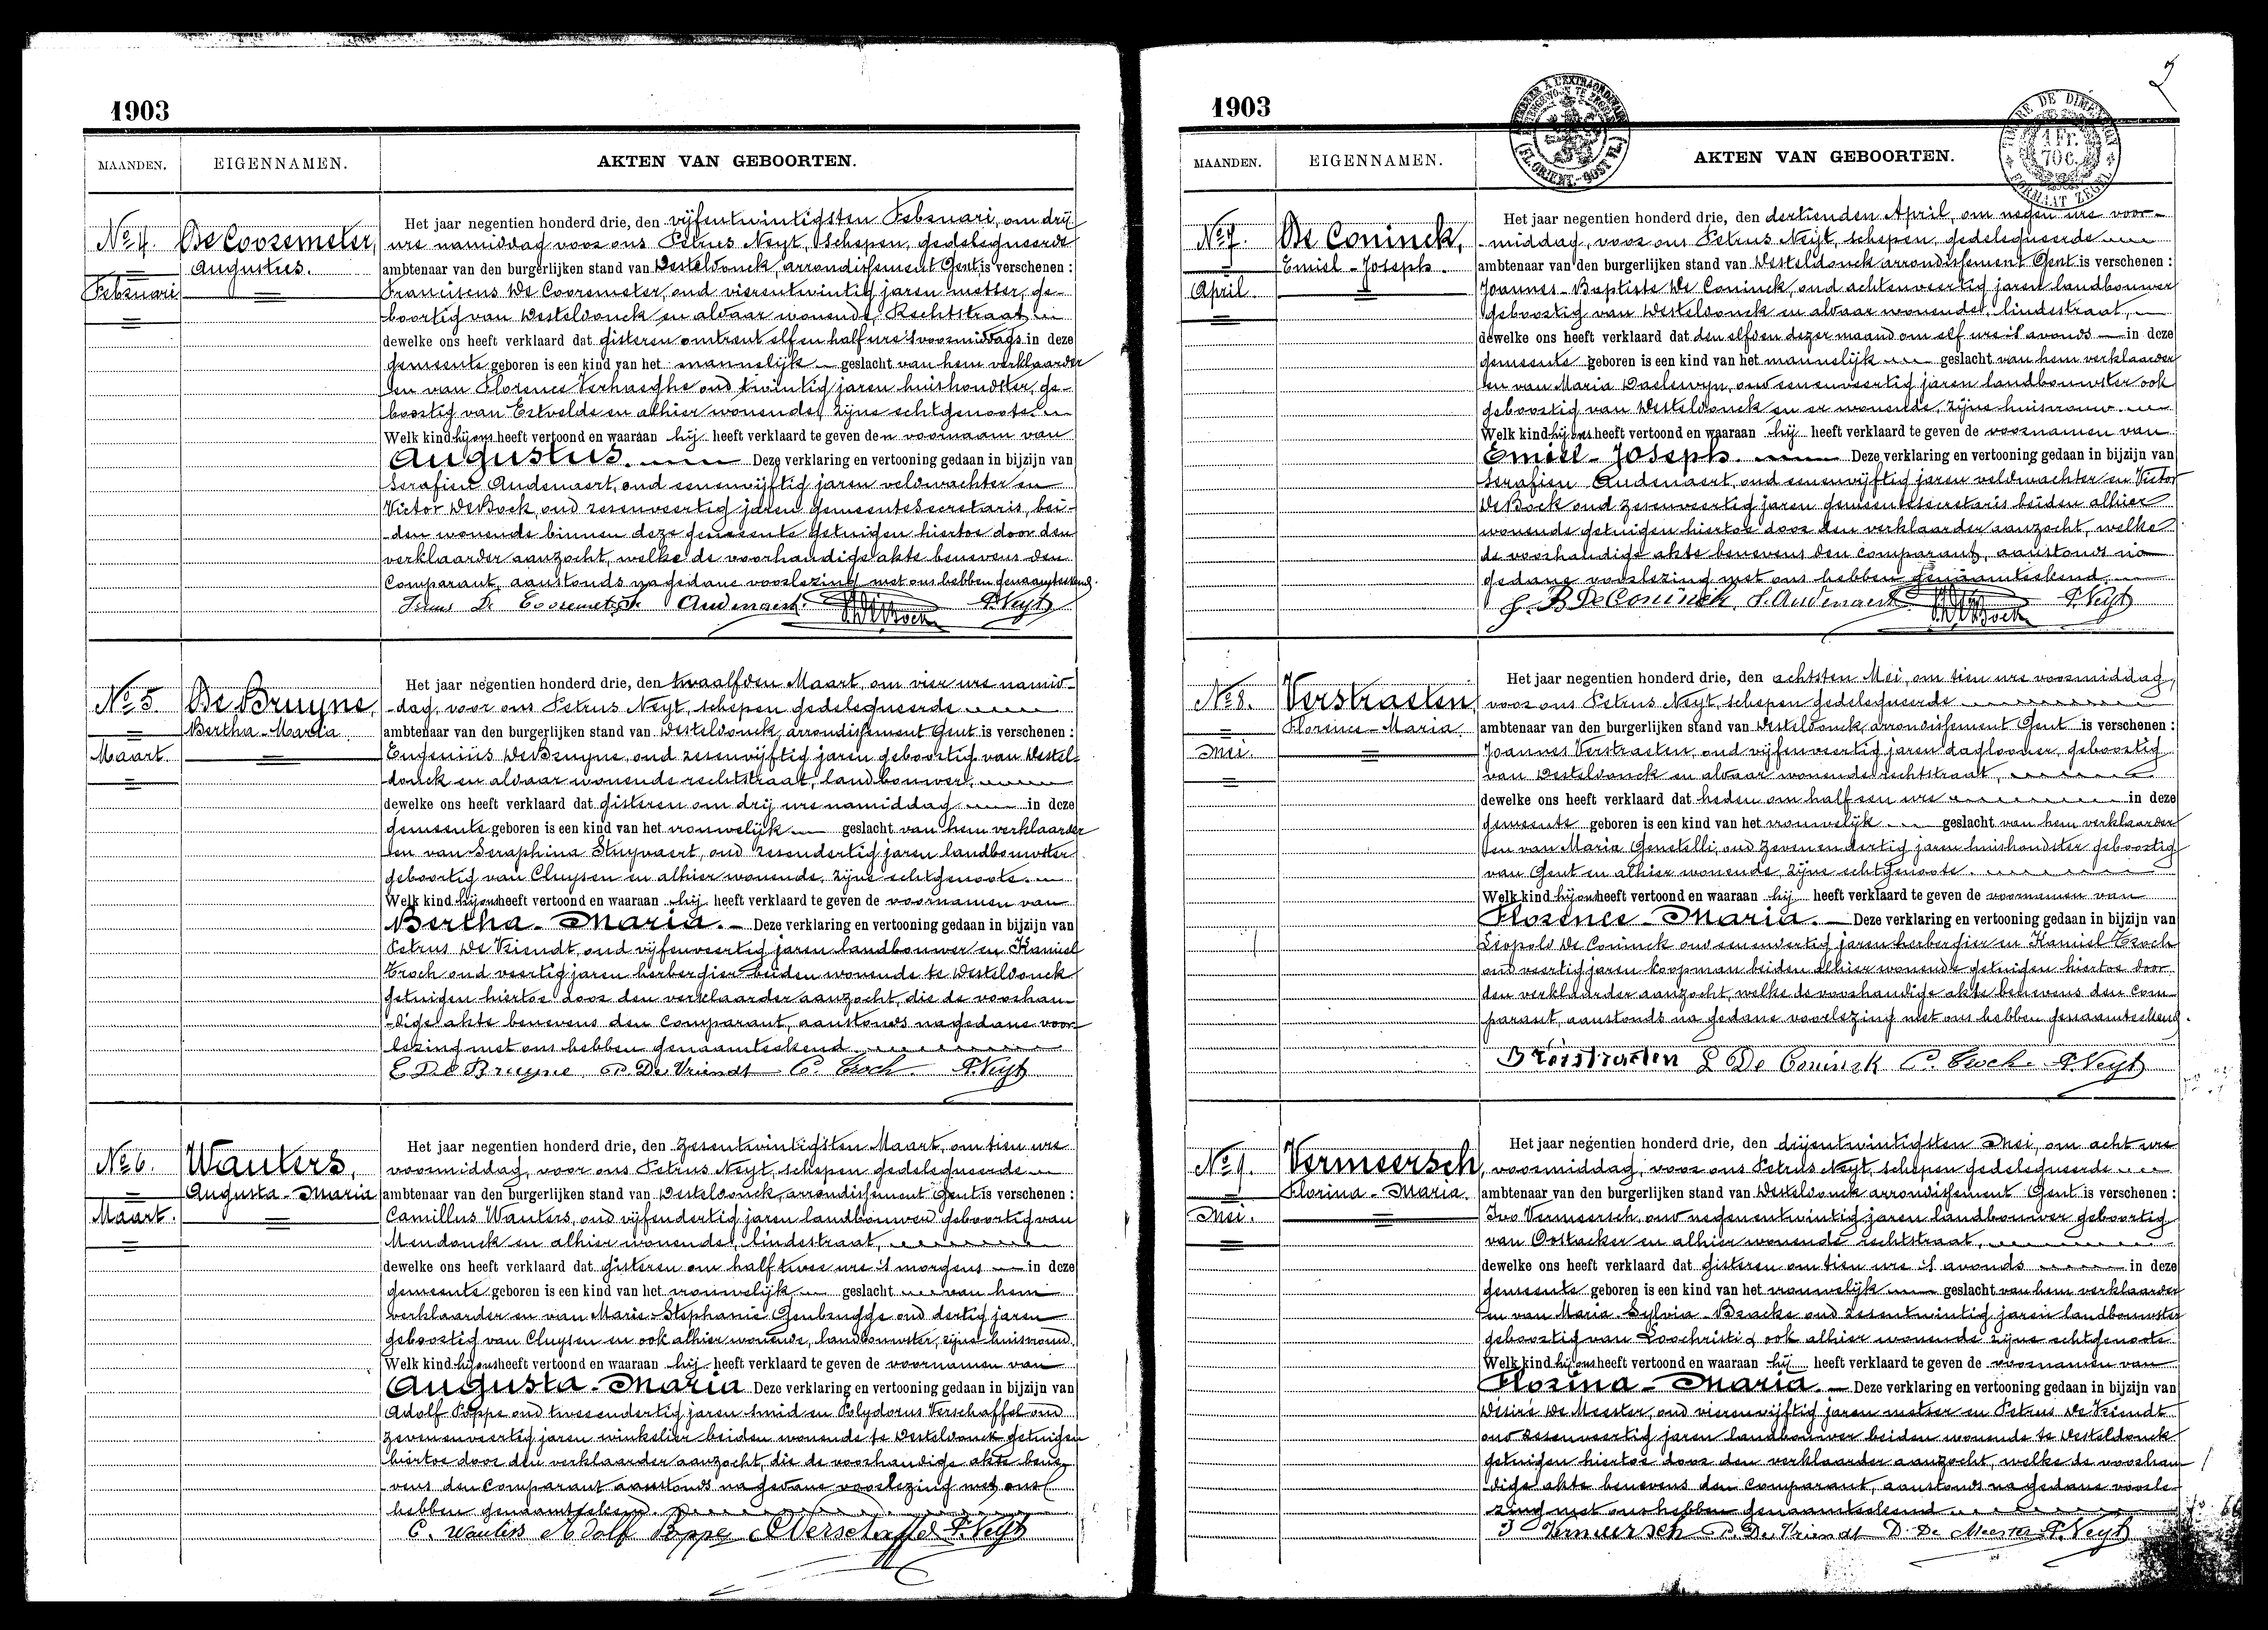 1903
MAANDEN. EIGENNAMEN. AKTEN VAN GEBOORTEN.
No 4. De Cooremeter,
Augustus.
Februari
Het jaar negentien honderd drie, den vijfentwintigsten Februari, om drij
ure namiddag voor ons Petrus Neyt, schepen, gedelegueerde
ambtenaar van den burgerlijken stand van Desteldonck, arrondissement Gent is verschenen :
Franciscus De Cooremeter, oud vierentwintig jaren metser, ge-
boortig van Desteldonck en aldaar wonende, Rechtstraat
dewelke ons heeft verklaard dat gisteren omtrent elf en half ure 's voormiddags in deze
gemeente geboren is een kind van het mannelijk geslacht van hem verklaarder
en van Florence Verhaeghe oud twintig jaren huishoudster, ge-
boortig van Ertvelde en alhier wonende, zijne echtgenoote.
Welk kind hij ons heeft vertoond en waaraan hij heeft verklaard te geven den voornaam van
Augustus. Deze verklaring en vertooning gedaan in bijzijn van
Serafien Audenaert, oud eenenvijftig jaren veldwachter en
Victor De Bock, oud zesenveertig jaren gemeentesecretaris, bei-
den wonende binnen deze gemeente getuigen hiertoe door den
verklaarder aanzocht, welke de voorhandige akte benevens den
Comparant, aanstonds na gedane voorlezing met ons hebben genaamteekend.
De Cooremeter S. Audenaert. V. De Bock P. Neyt
No 5. De Bruyne,
Bertha-Maria
Maart
Het jaar negentien honderd drie, den twaalfden Maart, om vier ure namid-
-dag, voor ons Petrus Neyt, schepen gedelegueerde
ambtenaar van den burgerlijken stand van Desteldonck, arrondissement Gent is verschenen :
Eugenius De Bruyne, oud zesenvijftig jaren geboortig van Destel-
donck en aldaar wonende rechtstraat, landbouwer,
dewelke ons heeft verklaard dat gisteren om drij ure namiddag in deze
gemeente geboren is een kind van het vrouwelijk geslacht van hem verklaarder
en van Seraphina Stuyvaert, oud zesendertig jaren landbouwster
geboortig van Cluysen en alhier wonende, zijne echtgenoote.
Welk kind hij ons heeft vertoond en waaraan hij heeft verklaard te geven de voornamen van
Bertha-Maria. Deze verklaring en vertooning gedaan in bijzijn van
Petrus De Vriendt, oud vijfenveertig jaren landbouwer en Kamiel
Croch oud veertig jaren herbergier beiden wonende te Desteldonck
getuigen hiertoe door den verklaarder aanzocht, die de voorhan-
-dige akte benevens den Comparant, aanstonds na gedane voor
lezing met ons hebben genaamteekend.
E De Bruyne P. De Vriendt C. Croch. P. Neyt
No 6. Wauters,
Augusta-Maria
Maart.
Het jaar negentien honderd drie, den zesentwintigsten Maart, om tien ure
voormiddag, voor ons Petrus Neyt, schepen gedelegueerde
ambtenaar van den burgerlijken stand van Desteldonck, arrondissement Gent is verschenen :
Camillus Wauters, oud vijfendertig jaren landbouwer geboortig van
Mendonck en alhier wonende, lindestraat,
dewelke ons heeft verklaard dat gisteren om half twee ure 's morgens in deze
gemeente geboren is een kind van het vrouwelijk geslacht van hem
verklaarder en van Marie-Stephanie Genbrugge oud dertig jaren
geboortig van Cluysen en ook alhier wonende, landbouwster, zijne huisvrouw.
Welk kind hij ons heeft vertoond en waaraan hij heeft verklaard te geven de voornamen van
Augusta-Maria Deze verklaring en vertooning gedaan in bijzijn van
Adolf Poppe oud tweeendertig jaren smid en Polydorus Verschaffel oud
zevenenveertig jaren winkelier beiden wonende te Desteldonck getuigen
hiertoe door den verklaarder aanzocht, die de voorhandige akte bene-
vens den Comparant aanstonds na gedane voorlezing met ons
hebben genaamteekend.
C. Wauters Adolf Poppe P. Verschaffel P. Neyt
2
1903
TIMBRE DE DIMENSION
1 Fr. 70 c.
FORMAAT ZEGEL
MAANDEN. EIGENNAMEN. AKTEN VAN GEBOORTEN.
No 7. De Coninck,
Emiel-Joseph.
April.
Het jaar negentien honderd drie, den dertienden April, om negen ure voor-
-middag, voor ons Petrus Neyt, schepen, gedelegueerde
ambtenaar van den burgerlijken stand van Desteldonck arrondissement Gent is verschenen :
Joannes-Baptiste De Coninck, oud achtenveertig jaren landbouwer
geboortig van Desteldonck en aldaar wonende, lindestraat,
dewelke ons heeft verklaard dat den elfden dezer maand om elf ure 's avonds in deze
gemeente geboren is een kind van het mannelijk geslacht van hem verklaarder
en van Maria Daelewyn, oud eenenveertig jaren landbouwster ook
geboortig van Desteldonck en er wonende, zijne huisvrouw.
Welk kind hij ons heeft vertoond en waaraan hij heeft verklaard te geven de voornamen van
Emiel-Joseph. Deze verklaring en vertooning gedaan in bijzijn van
Serafien Audenaert, oud eenenvijftig jaren veldwachter en Victor
De Bock oud zesenveertig jaren gemeentesecretaris beiden alhier
wonende getuigen hiertoe door den verklaarder aanzocht, welke
de voorhandige akte benevens den Comparant, aanstonds na
gedane voorlezing met ons hebben genaamteekend.
J. B De Coninck, S. Audenaert V. De Bock P. Neyt
No 8. Verstraeten,
Florence-Maria.
Mei.
Het jaar negentien honderd drie, den achtsten Mei, om tien ure voormiddag,
voor ons Petrus Neyt, schepen gedelegueerde
ambtenaar van den burgerlijken stand van Desteldonck arrondissement Gent is verschenen :
Joannes Verstraeten, oud vijfenveertig jaren daglooner, geboortig
van Desteldonck en aldaar wonende rechtstraat,
dewelke ons heeft verklaard dat heden om half een ure in deze
gemeente geboren is een kind van het vrouwelijk geslacht van hem verklaarder
en van Maria Genetelli, oud zevenendertig jaren huishoudster geboortig
van Gent en alhier wonende, zijne echtgenoote.
Welk kind hij ons heeft vertoond en waaraan hij heeft verklaard te geven de voornamen van
Florence-Maria. Deze verklaring en vertooning gedaan in bijzijn van
Leopold De Coninck oud eenenveertig jaren herbergier en Kamiel Croch
oud veertig jaren koopman beiden alhier wonende getuigen hiertoe door
den verklaarder aanzocht, welke de voorhandige akte benevens den Com-
parant, aanstonds na gedane voorlezing met ons hebben genaamteekend.
Verstraeten L De Coninck C. Croch. P. Neyt
No 9. Vermeersch,
Florina-Maria.
Mei.
Het jaar negentien honderd drie, den drijentwintigsten Mei, om acht ure
voormiddag, voor ons Petrus Neyt, schepen gedelegueerde
ambtenaar van den burgerlijken stand van Desteldonck arrondissement Gent is verschenen :
Ivo Vermeersch, oud negenentwintig jaren landbouwer geboortig
van Oostacker en alhier wonende rechtstraat,
dewelke ons heeft verklaard dat gisteren om tien ure 's avonds in deze
gemeente geboren is een kind van het vrouwelijk geslacht van hem verklaarder
en van Maria-Sylvia-Bracke oud zesentwintig jaren landbouwster
geboortig van Loochristi & ook alhier wonende zijne echtgenoote
Welk kind hij ons heeft vertoond en waaraan hij heeft verklaard te geven de voornamen van
Florina-Maria. Deze verklaring en vertooning gedaan in bijzijn van
Desiré De Meester, oud vierenvijftig jaren metser en Petrus De Vriendt
oud zesenveertig jaren landbouwer beiden wonende te Desteldonck
getuigen hiertoe door den verklaarder aanzocht, welke de voorhan
dige akte benevens den Comparant, aanstonds na gedane voorle-
zing met ons hebben genaamteekend
J Vermeersch P. De Vriendt D. De Meester P. Neyt